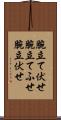 腕立て伏せ
腕立てふせ
腕立伏せ